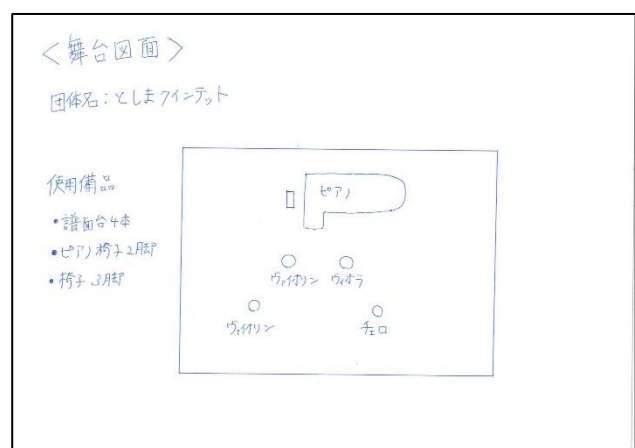 <舞台図面>
団体名:としまクインテット
使用備品
•譜面台4本
•ピアノ椅子2脚
•椅子3脚
ピアノ
ヴァイオリン ヴィオラ
ヴァイオリン チェロ